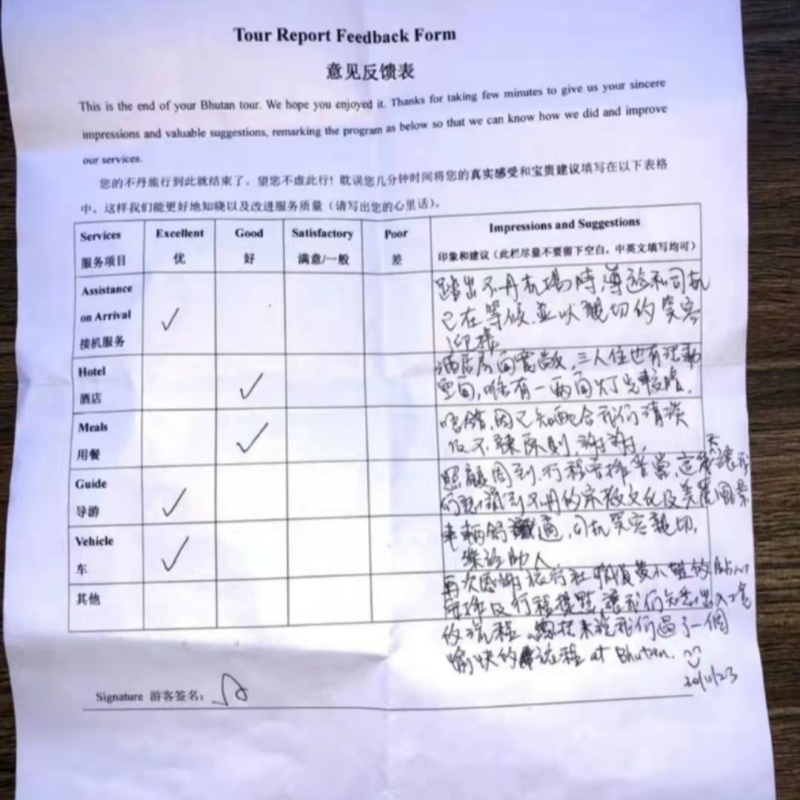 Tour Report Feedback Form
意见反馈表
This is the end of your Bhutan tour. We hope you enjoyed it. Thanks for taking few minutes to give us your sincere
impressions and valuable suggestions, remarking the program as below so that we can know how we did and improve
our services.
您的不丹旅行到此就结束了。望您不虚此行! 耽误您几分钟时间将您的真实感受和宝贵建议填写在以下表格
中。这样我们能更好地知晓以及改进服务质量（请写出您的心里话）。
Services Excellent Good Satisfactory Poor Impressions and Suggestions
服务项目 优 好 满意/一般 差 印象和建议（此栏尽量不要留下空白，中英文填写均可）
Assistance
on Arrival
接机服务
踏出不丹机場時,導遊和司机
已在等候,並以親切的笑容
迎接
Hotel
酒店
酒店房间寬敞,三人住也有活動
空间,唯有一两间灯光較暗.
Meals
用餐
不錯,因已知配合我们清淡
不辣原则,謝謝,
Guide
导游
照顧周到,行程安排妥當,這幾天讓我
们認識到不丹的宗教文化及美麗風景
Vehicle
车
車輛舒適,司机笑容親切,
樂於助人.
其他
再次感謝旅行社
及行程,讓我们知悉出入境
的流程,總括來說我们過了一個
愉快的旅程 at Bhutan.
20/11/23
Signature 游客签名: